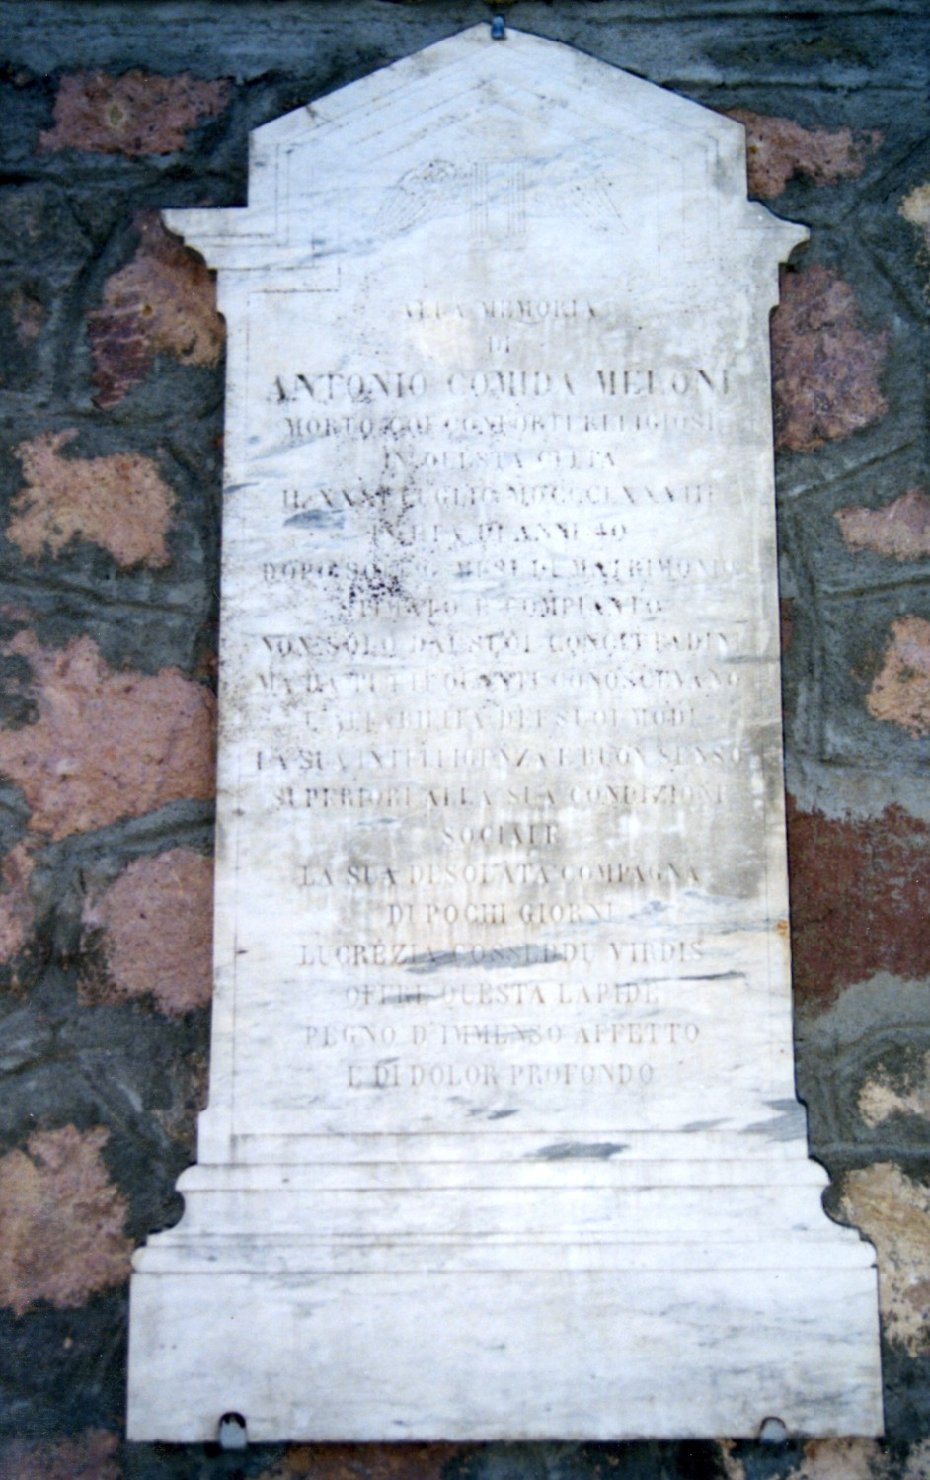 ALLA MEMORIA
DI
ANTONIO COMIDA MELONI
MORTO COI CONFORTI RELIGIOSI
IN QUESTA
IL LUGLIO
IN ETÀ DI ANNI 40
DOPO SOLO MESI DI MATRIMONIO
STIMATO E COMPIANTO
NON SOLO DAI SUOI CONCITTADINI
MA DA TUTTI QUANTI CONOSCEVANO
L'AFFABILITÀ DEI SUOI MODI
LA SUA INTELLIGENZA E BUON SENSO
SUPERIORI ALLA SUA CONDIZIONE
SOCIALE
LA SUA DESOLATA COMPAGNA
DI POCHI GIORNI
LUCREZIA COSSEDDU VIRDIS
OFFRE QUESTA LAPIDE
PEGNO D'IMMENSO AFFETTO
E DI DOLOR PROFONDO